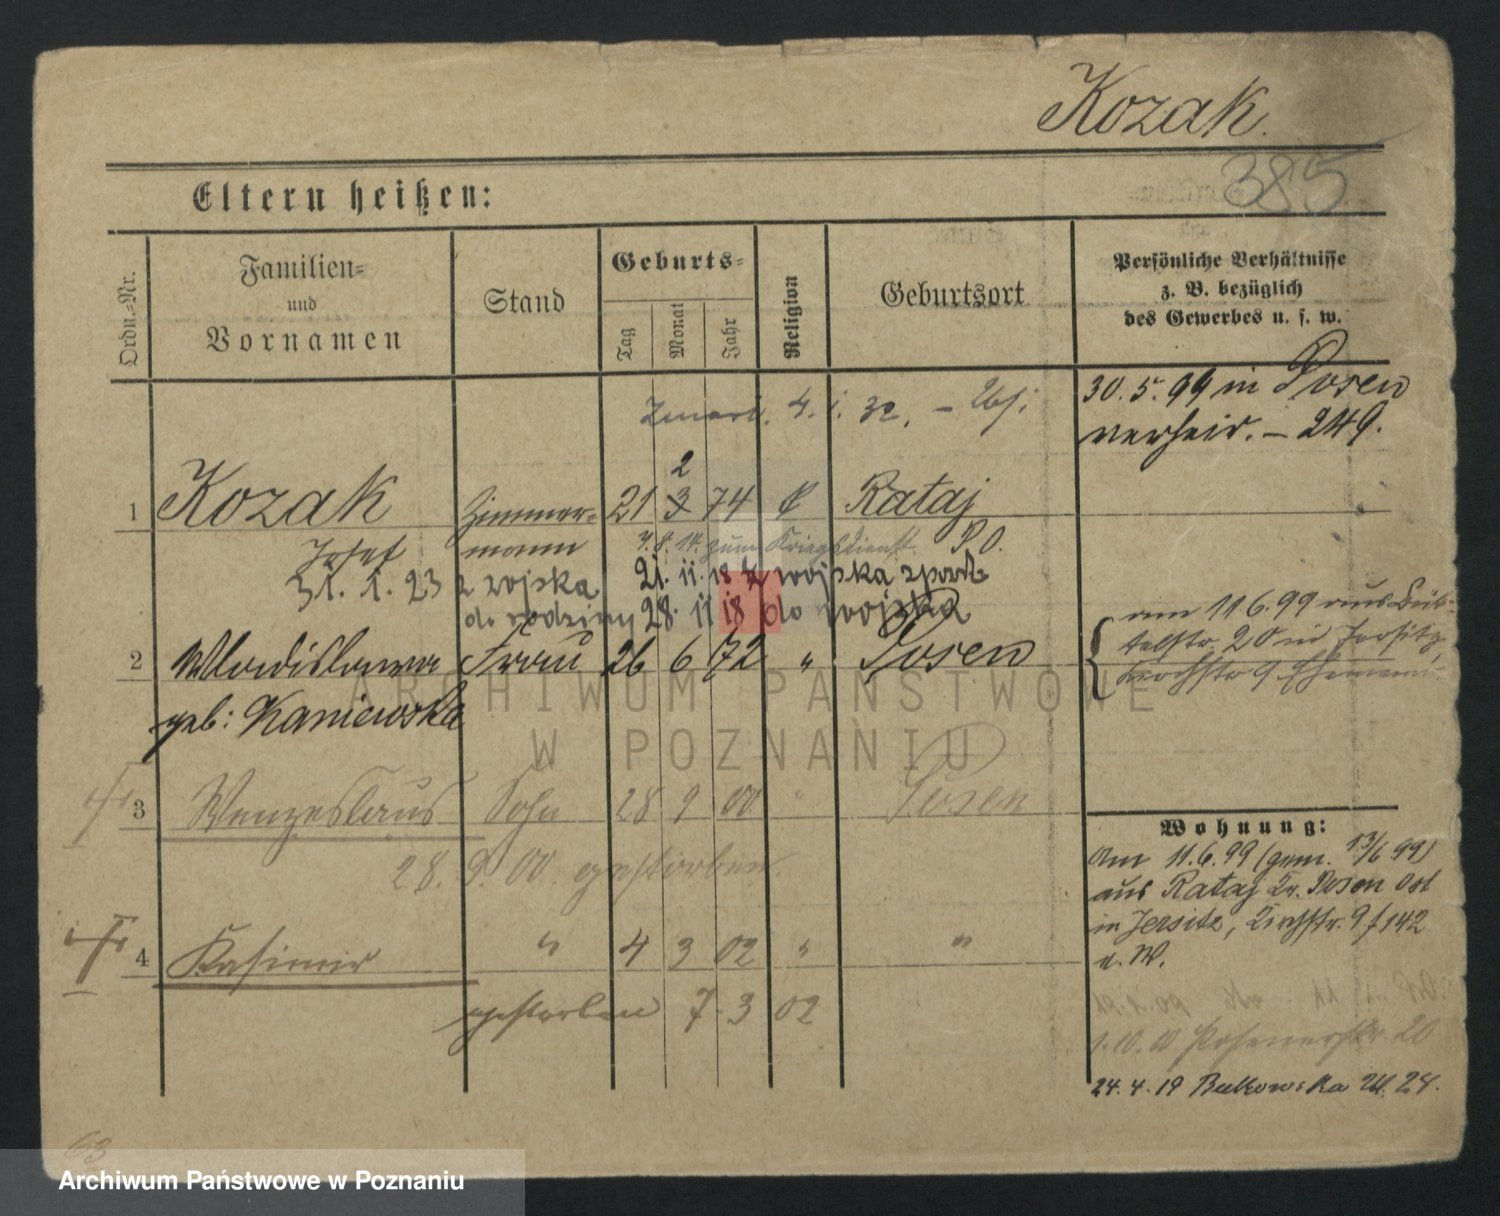 Kozak.
385
Eltern heißen:
Ordn.-Nr.
Familien- und Vornamen
Stand
Geburts-
Tag
Monat
Jahr
Religion
Geburtsort
Persönliche Verhältnisse
z. B. bezüglich
des Gewerbes u. s. w.
Zmarł. 4. 1. 32.
30. 5. 99 in Posen
verheir. – 249.
2
1 Kozak Zimmer- 21 3 74 k Rataj
Josef mann zum Kriegsdienst P. O.
31. 1. 23 z wojska 21. 11. 18 z wojska
do rodziny 28. 11 18 do wojska
am 11 6. 99 aus
20 in Jersitz,
2 Wladislawa Frau 26 6 72 " Posen
geb: Kaniewska
ARCHIWUM PAŃSTWOWE
W POZNANIU
3 Wenzeslaus Sohn 28 9 00 " Posen
28. 9. 00 gestorben.
4 Kasimir " 4 3 02 " "
gestorben 7. 3 02
Wohnung:
Am 11. 6. 99 (gem. 13/6 99)
aus Rataj Kr. Posen Ost
in Jersitz, Kirchstr. 9 142
1. 10. 00 Posenerstr. 20
24. 4. 19 Bukowska 24.
63
Archiwum Państwowe w Poznaniu